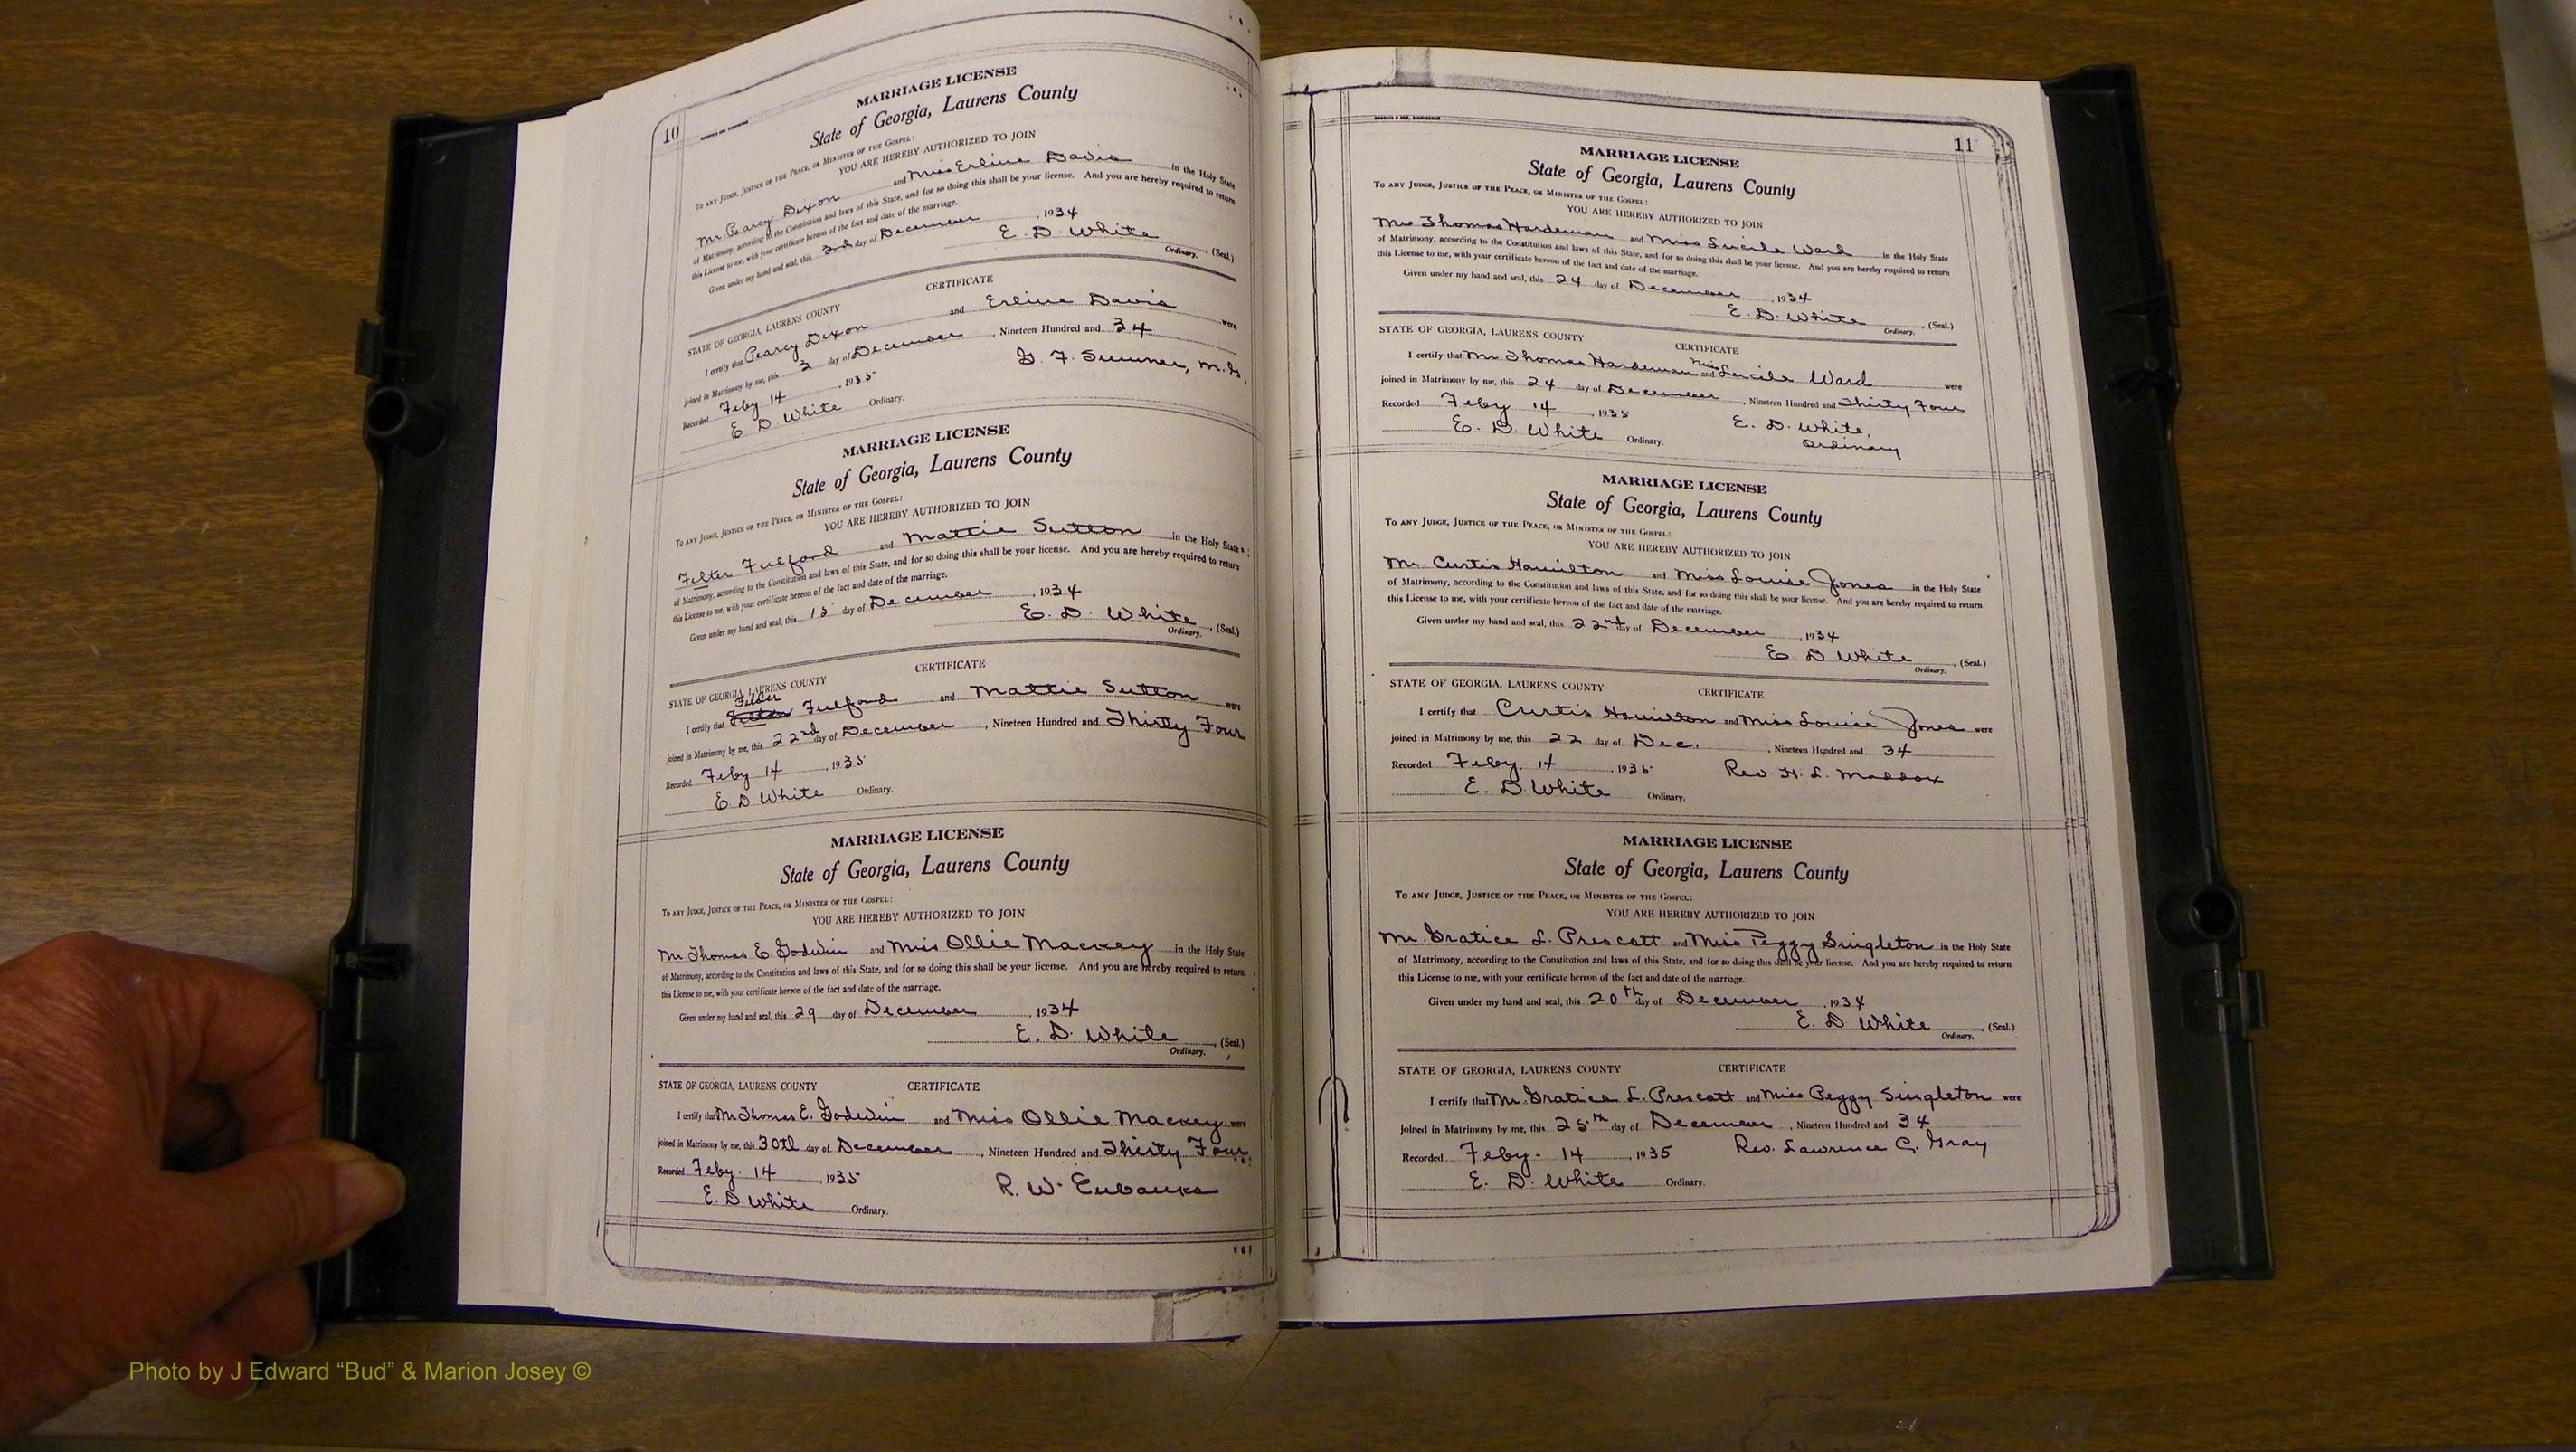 10
MARRIAGE LICENSE
State of Georgia, Laurens County
To any Judge, Justice of the Peace, or Minister of the Gospel:
YOU ARE HEREBY AUTHORIZED TO JOIN
Mr. Pearcy Dixon and Miss Erline Davis in the Holy State
of Matrimony, according to the Constitution and laws of this State, and for so doing this shall be your license. And you are hereby required to return
this License to me, with your certificate hereon of the fact and date of the marriage.
Given under my hand and seal, this 3rd day of December, 1934
E. D. White, (Seal.)
Ordinary.
CERTIFICATE
STATE OF GEORGIA, LAURENS COUNTY
I certify that Pearcy Dixon and Erline Davis were
joined in Matrimony by me, this 3 day of December, Nineteen Hundred and 34
Recorded Feby. 14, 1935 G. F. Sumner, M.G.
E D White Ordinary.
MARRIAGE LICENSE
State of Georgia, Laurens County
To any Judge, Justice of the Peace, or Minister of the Gospel:
YOU ARE HEREBY AUTHORIZED TO JOIN
Filter Fulford and Mattie Sutton in the Holy State
of Matrimony, according to the Constitution and laws of this State, and for so doing this shall be your license. And you are hereby required to return
this License to me, with your certificate hereon of the fact and date of the marriage.
Given under my hand and seal, this 15 day of December, 1934
E. D. White, (Seal.)
Ordinary.
CERTIFICATE
STATE OF GEORGIA, LAURENS COUNTY
Felder
I certify that Fulford and Mattie Sutton were
joined in Matrimony by me, this 22nd day of December, Nineteen Hundred and Thirty Four
Recorded Feby 14, 1935
E D White Ordinary.
MARRIAGE LICENSE
State of Georgia, Laurens County
To any Judge, Justice of the Peace, or Minister of the Gospel:
YOU ARE HEREBY AUTHORIZED TO JOIN
Mr. Thomas E. Godwin and Miss Ollie Mackey in the Holy State
of Matrimony, according to the Constitution and laws of this State, and for so doing this shall be your license. And you are hereby required to return
this License to me, with your certificate hereon of the fact and date of the marriage.
Given under my hand and seal, this 29 day of December, 1934
E. D. White, (Seal.)
Ordinary.
STATE OF GEORGIA, LAURENS COUNTY CERTIFICATE
I certify that Mr. Thomas E. Godwin and Miss Ollie Mackey were
joined in Matrimony by me, this 30th day of December, Nineteen Hundred and Thirty Four
Recorded Feby. 14, 1935 R. W. Eubanks
E. D. White Ordinary.
11
MARRIAGE LICENSE
State of Georgia, Laurens County
To any Judge, Justice of the Peace, or Minister of the Gospel:
YOU ARE HEREBY AUTHORIZED TO JOIN
Mr. Thomas Hardeman and Miss Lucile Ward in the Holy State
of Matrimony, according to the Constitution and laws of this State, and for so doing this shall be your license. And you are hereby required to return
this License to me, with your certificate hereon of the fact and date of the marriage.
Given under my hand and seal, this 24 day of December, 1934
E. D. White, (Seal.)
Ordinary.
STATE OF GEORGIA, LAURENS COUNTY CERTIFICATE
I certify that Mr. Thomas Hardeman and Miss Lucile Ward were
joined in Matrimony by me, this 24 day of December, Nineteen Hundred and Thirty Four
Recorded Feby 14, 1935 E. D. White,
E. D. White Ordinary. Ordinary
MARRIAGE LICENSE
State of Georgia, Laurens County
To any Judge, Justice of the Peace, or Minister of the Gospel:
YOU ARE HEREBY AUTHORIZED TO JOIN
Mr. Curtis Hamilton and Miss Louise Jones in the Holy State
of Matrimony, according to the Constitution and laws of this State, and for so doing this shall be your license. And you are hereby required to return
this License to me, with your certificate hereon of the fact and date of the marriage.
Given under my hand and seal, this 22nd day of December, 1934
E D White, (Seal.)
Ordinary.
STATE OF GEORGIA, LAURENS COUNTY CERTIFICATE
I certify that Curtis Hamilton and Miss Louise Jones were
joined in Matrimony by me, this 22 day of Dec., Nineteen Hundred and 34
Recorded Feby. 14, 1935 Rev. H. L. Maddox
E. D. White Ordinary.
MARRIAGE LICENSE
State of Georgia, Laurens County
To any Judge, Justice of the Peace, or Minister of the Gospel:
YOU ARE HEREBY AUTHORIZED TO JOIN
Mr. Gratice L. Prescott and Miss Peggy Singleton in the Holy State
of Matrimony, according to the Constitution and laws of this State, and for so doing this shall be your license. And you are hereby required to return
this License to me, with your certificate hereon of the fact and date of the marriage.
Given under my hand and seal, this 20th day of December, 1934
E. D White, (Seal.)
Ordinary.
STATE OF GEORGIA, LAURENS COUNTY CERTIFICATE
I certify that Mr. Gratice L. Prescott and Miss Peggy Singleton were
joined in Matrimony by me, this 25th day of December, Nineteen Hundred and 34
Recorded Feby. 14, 1935 Rev. Lawrence C. Gray
E. D. White Ordinary.
Photo by J Edward “Bud” & Marion Josey ©